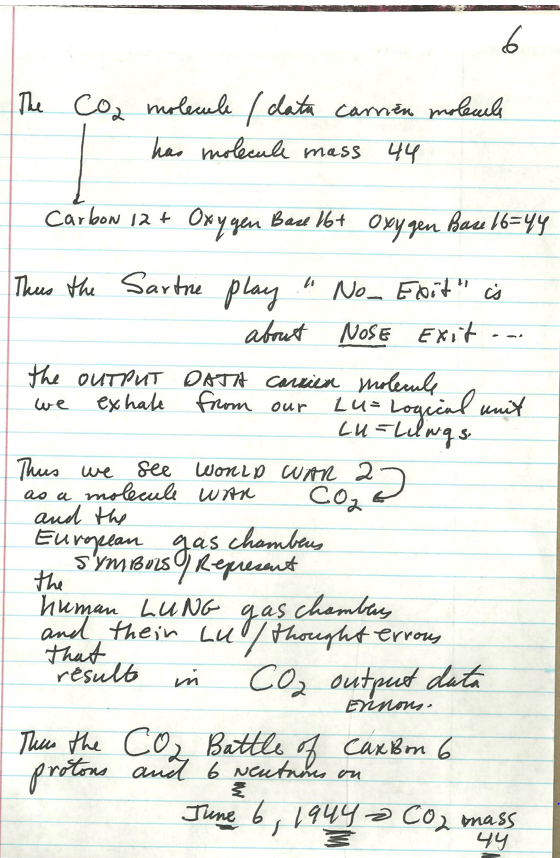 6
The CO2 molecule / data carrier molecule
has molecule mass 44
Carbon 12 + Oxygen Base 16 + Oxygen Base 16 = 44
Thus the Sartre play " No_ Exit " is
about NOSE Exit ---
the OUTPUT DATA carrier molecule
we exhale from our LU = Logical unit
LU = Lungs.
Thus we see WORLD WAR 2
as a molecule WAR CO2
and the
European gas chambers
SYMBOLS / Represent
the
human LUNG gas chambers
and their LU / thought errors
that
results in CO2 output data
ERRORS.
Thus the CO2 Battle of CARBON 6
protons and 6 neutrons on
June 6, 1944 → CO2 mass
44